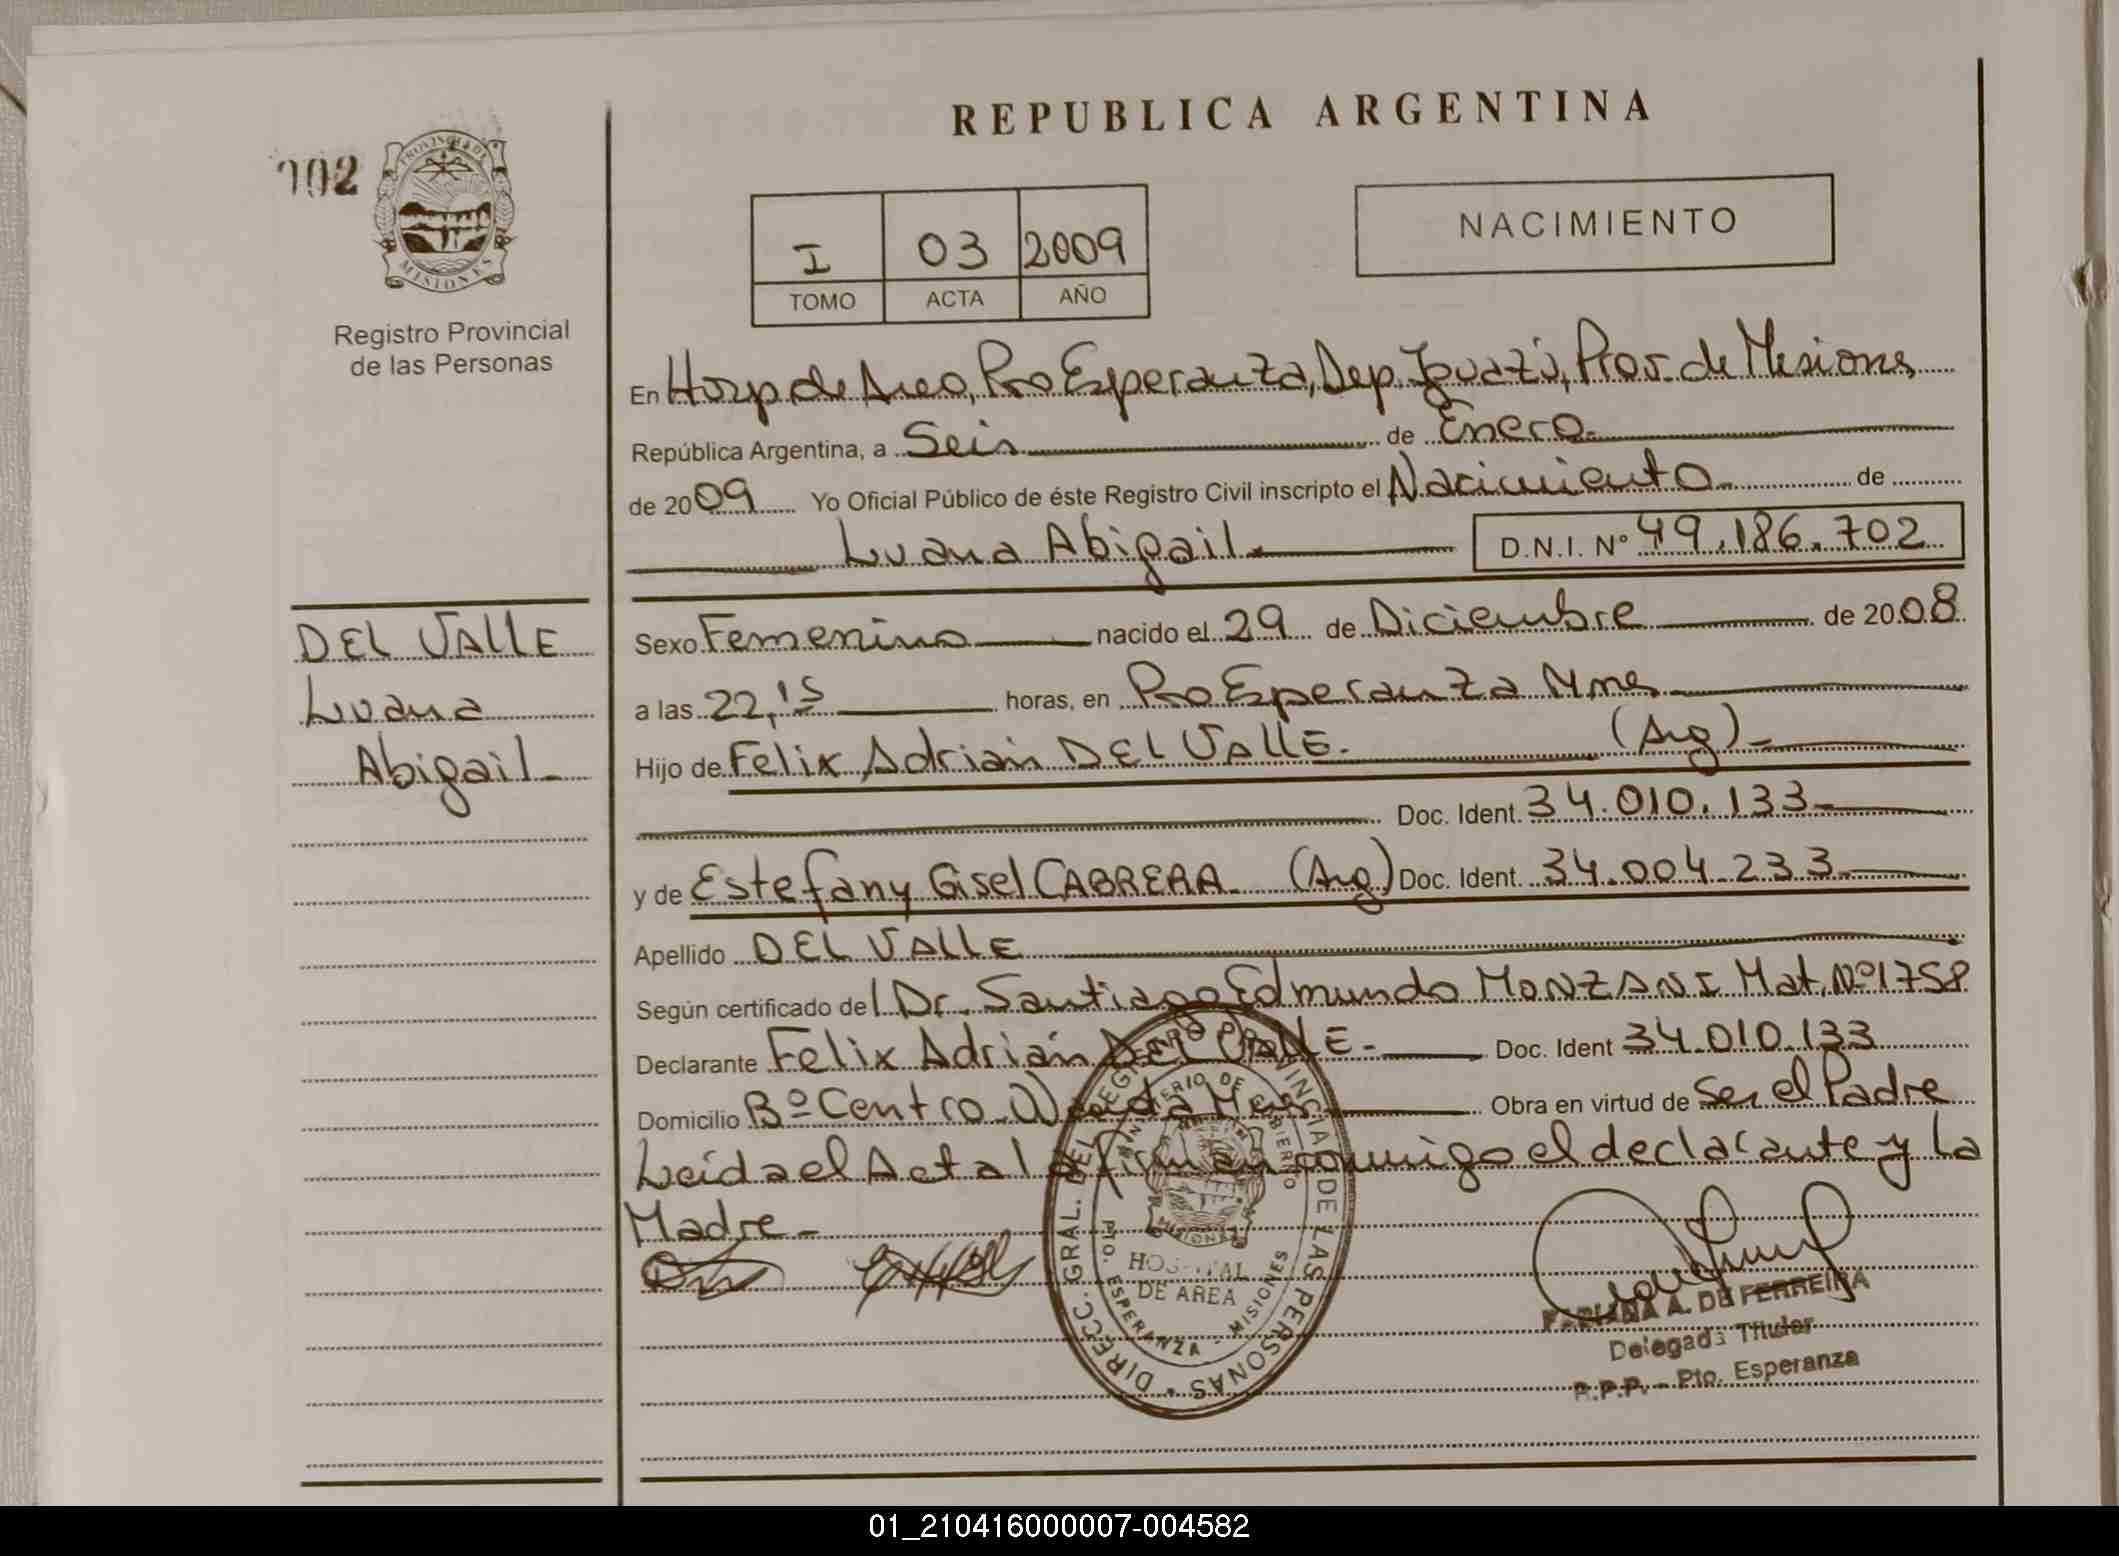 REPUBLICA ARGENTINA
702
PROVINCIA DE MISIONES
Registro Provincial
de las Personas
I 03 2009
TOMO ACTA AÑO
NACIMIENTO
En Hosp de Area, Pto Esperanza, Dep. Iguazú, Prov. de Misiones
República Argentina, a Seis de Enero
de 2009 Yo Oficial Público de éste Registro Civil inscripto el Nacimiento de
Luana Abigail D.N.I. Nº 49.186.702
DEL VALLE
Luana
Abigail
Sexo Femenino nacido el 29 de Diciembre de 2008
a las 22,15 horas, en Pto Esperanza Mnes
Hijo de Felix Adrian DEL VALLE. (Arg)
Doc. Ident. 34.010.133
y de Estefany Gisel CABRERA (Arg) Doc. Ident. 34.004.233
Apellido DEL VALLE
Según certificado del Dr. Santiago Edmundo MONZANI Mat. Nº 1758
Declarante Felix Adrián DEL VALLE. Doc. Ident 34.010.133
Domicilio Bº Centro Wanda Mnes Obra en virtud de Ser el Padre
Leida el Acta la firman conmigo el declarante y la
Madre
DIRECC. GRAL. DEL REGISTRO PROVINCIAL DE LAS PERSONAS
MINISTERIO DE GOBIERNO
HOSPITAL
DE AREA
PTO. ESPERANZA - MISIONES
A. DE FERREIRA
Delegada Titular
R.P.P. - Pto. Esperanza
01_210416000007-004582